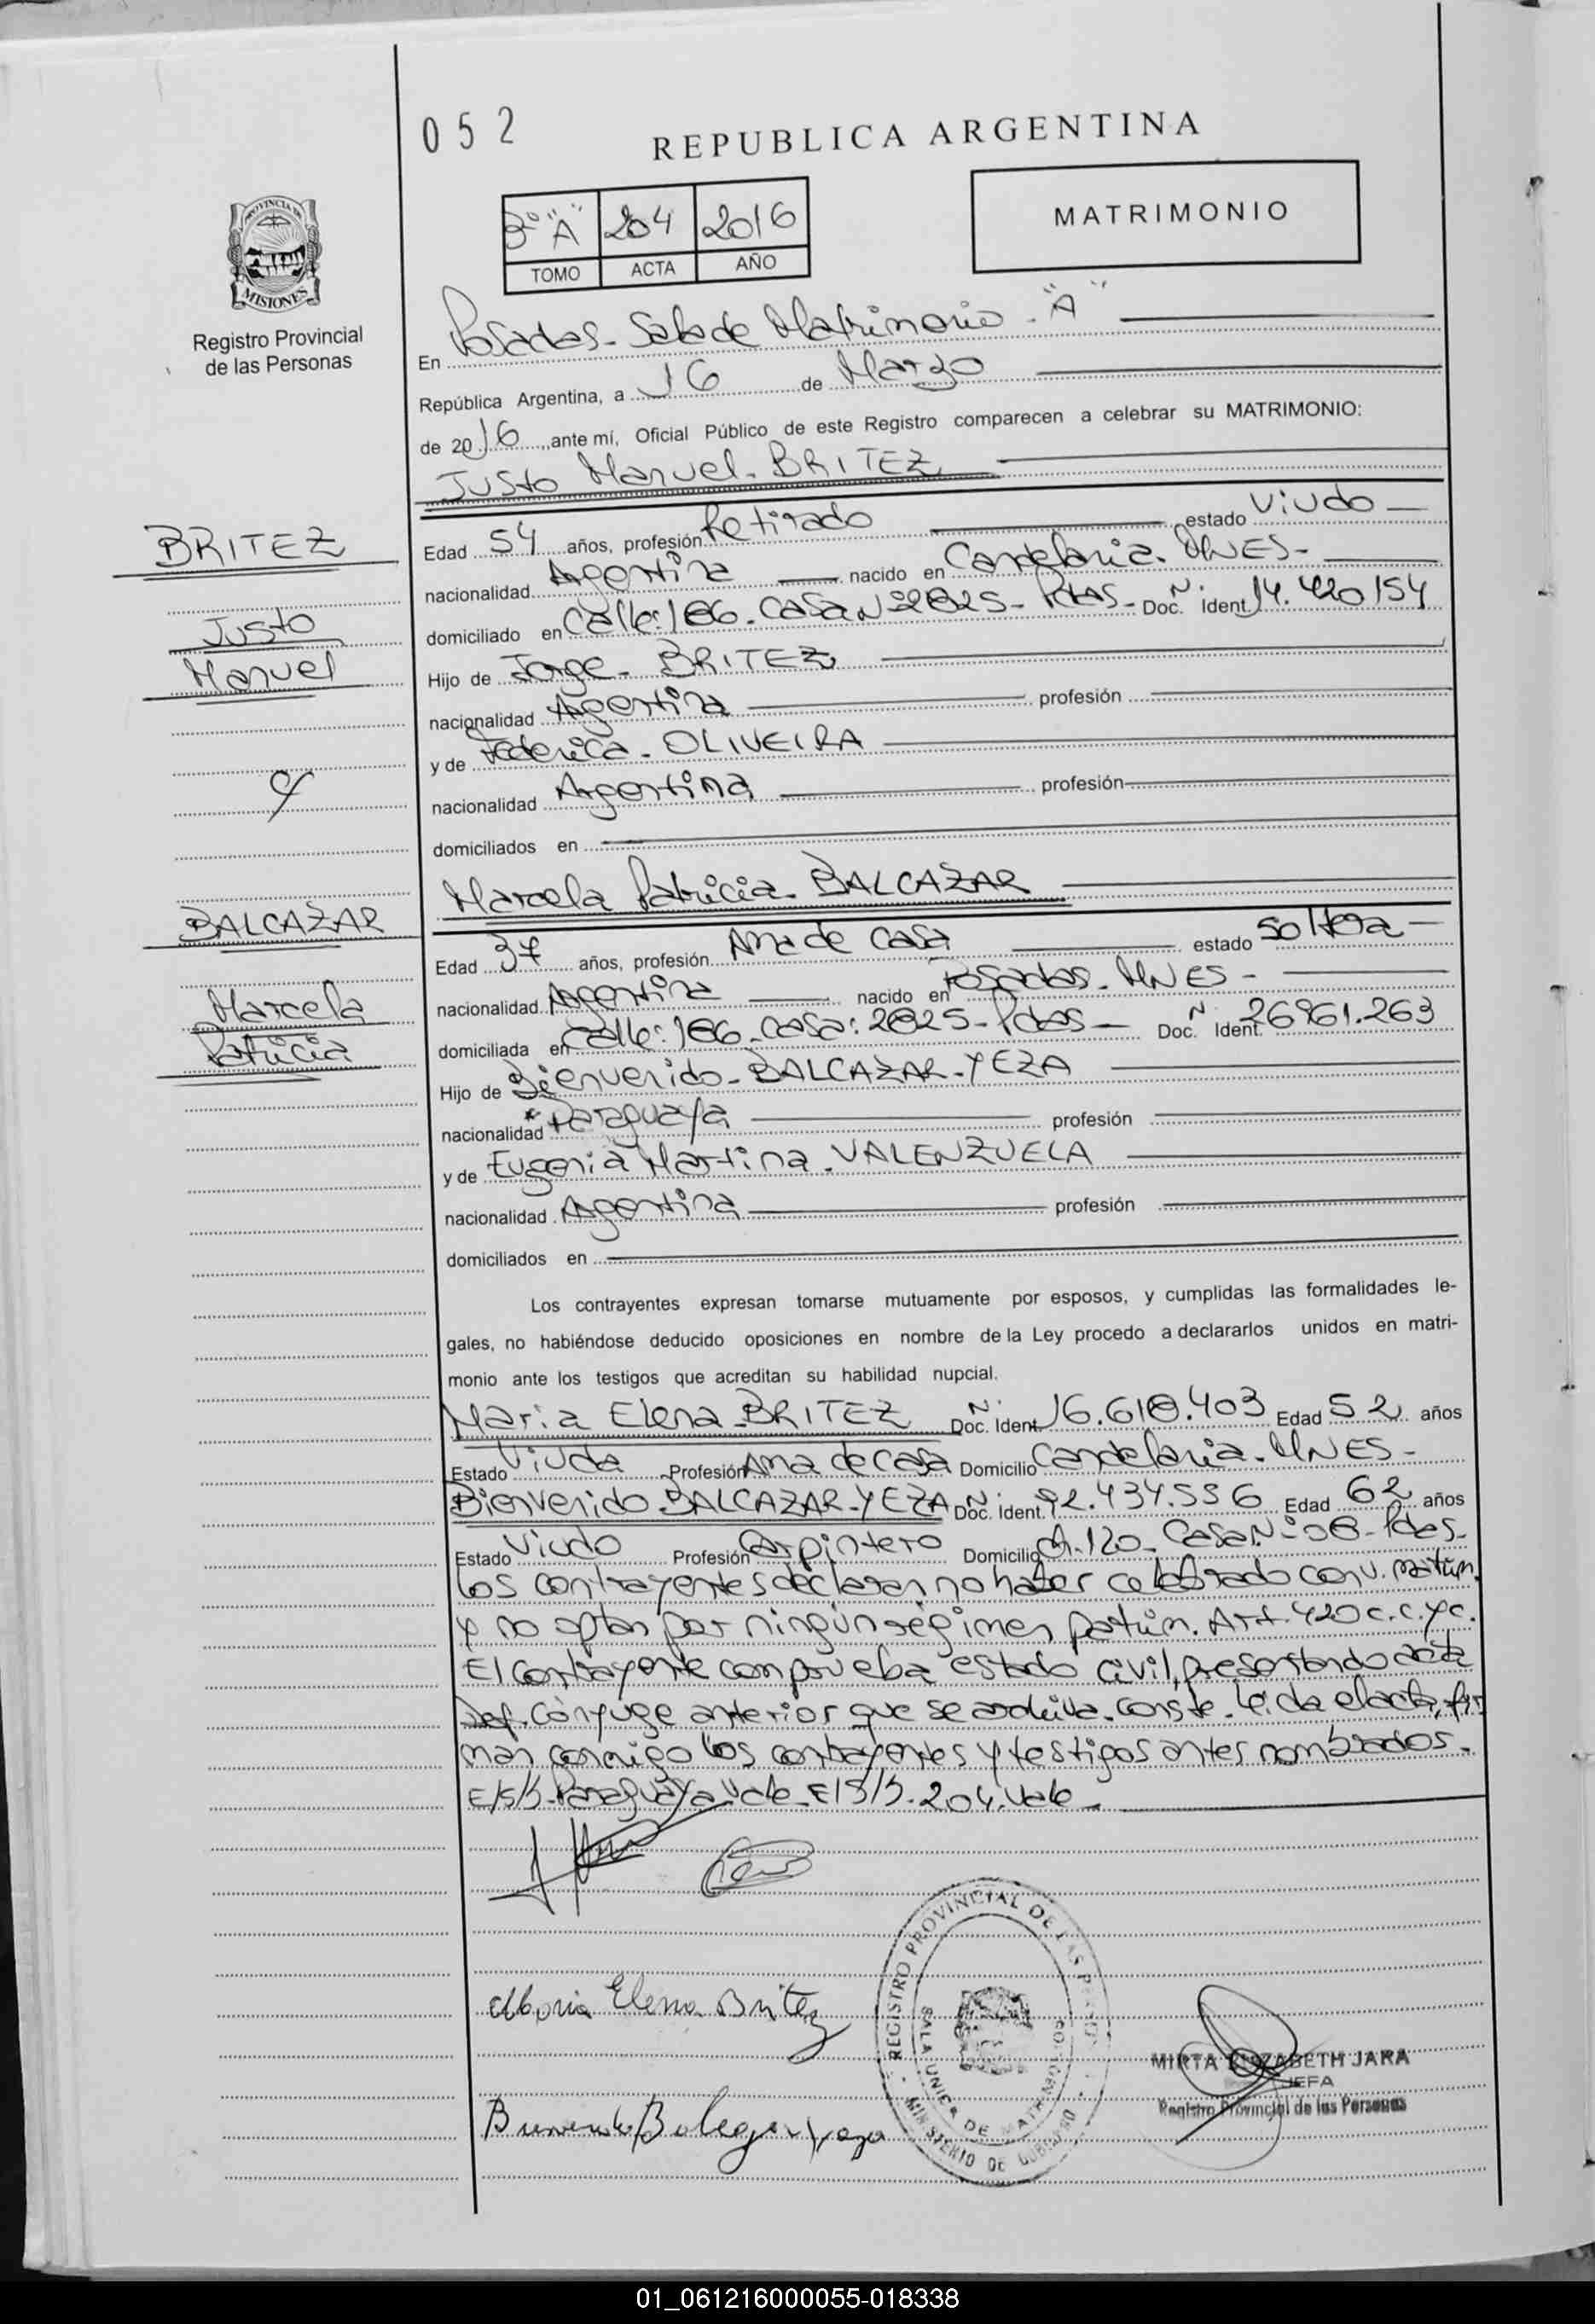 052
REPUBLICA ARGENTINA
PROVINCIA DE
MISIONES
Registro Provincial
de las Personas
3º "A" 204 2016
TOMO ACTA AÑO
MATRIMONIO
En Posadas - Sala de Matrimonio - "A"
República Argentina, a 16 de Marzo
de 2016, ante mí, Oficial Público de este Registro comparecen a celebrar su MATRIMONIO:
Justo Manuel - BRITEZ
BRITEZ
Justo
Manuel
c/
BALCAZAR
Marcela
Patricia
Edad 54 años, profesión Retirado estado Viudo
nacionalidad Argentina nacido en Candelaria - MNES -
domiciliado en Calle: 186 - Casa Nº 2825 - Pdas - Doc. Nº Ident. 14.420154
Hijo de Jorge - BRITEZ
nacionalidad Argentina profesión
y de Federica - OLIVEIRA
nacionalidad Argentina profesión
domiciliados en
Marcela Patricia - BALCAZAR
Edad 37 años, profesión Ama de Casa estado Soltera
nacionalidad Argentina nacido en Posadas - MNES -
domiciliada en Calle: 186 - Casa: 2825 - Pdas - Doc. N Ident. 26961.263
Hijo de Bienvenido - BALCAZAR - YEZA
nacionalidad * Paraguaya profesión
y de Eugenia Martina - VALENZUELA
nacionalidad Argentina profesión
domiciliados en
Los contrayentes expresan tomarse mutuamente por esposos, y cumplidas las formalidades le-
gales, no habiéndose deducido oposiciones en nombre de la Ley procedo a declararlos unidos en matri-
monio ante los testigos que acreditan su habilidad nupcial.
Maria Elena - BRITEZ Doc. N Ident. 16.618.403 Edad 52 años
Estado Viuda Profesión Ama de Casa Domicilio Candelaria - MNES -
Bienvenido - BALCAZAR - YEZA Doc. N Ident. 92.434.556 Edad 62 años
Estado Viudo Profesión Carpintero Domicilio Ch. 120 - Casa Nº 08 - Pdas -
Los contrayentes declaran no haber celebrado conv. matrim.
y no optan por ningún régimen patrim. Art. 420 c.c.yc.
El Contrayente comprueba estado civil, presentando acta
Def. Cónyuge anterior que se archiva. Conste. Leida el acta, fir
man conmigo los contrayentes y testigos antes nombrados -
E/S/B - Paraguaya Vale - E/S/B - 204 - Vale -
Maria Elena Britez
REGISTRO PROVINCIAL DE LAS PERSONAS
SALA UNICA DE MATRIMONIOS
MINISTERIO DE GOBIERNO
MIRTA ELIZABETH JARA
JEFA
Registro Provincial de las Personas
01_061216000055-018338